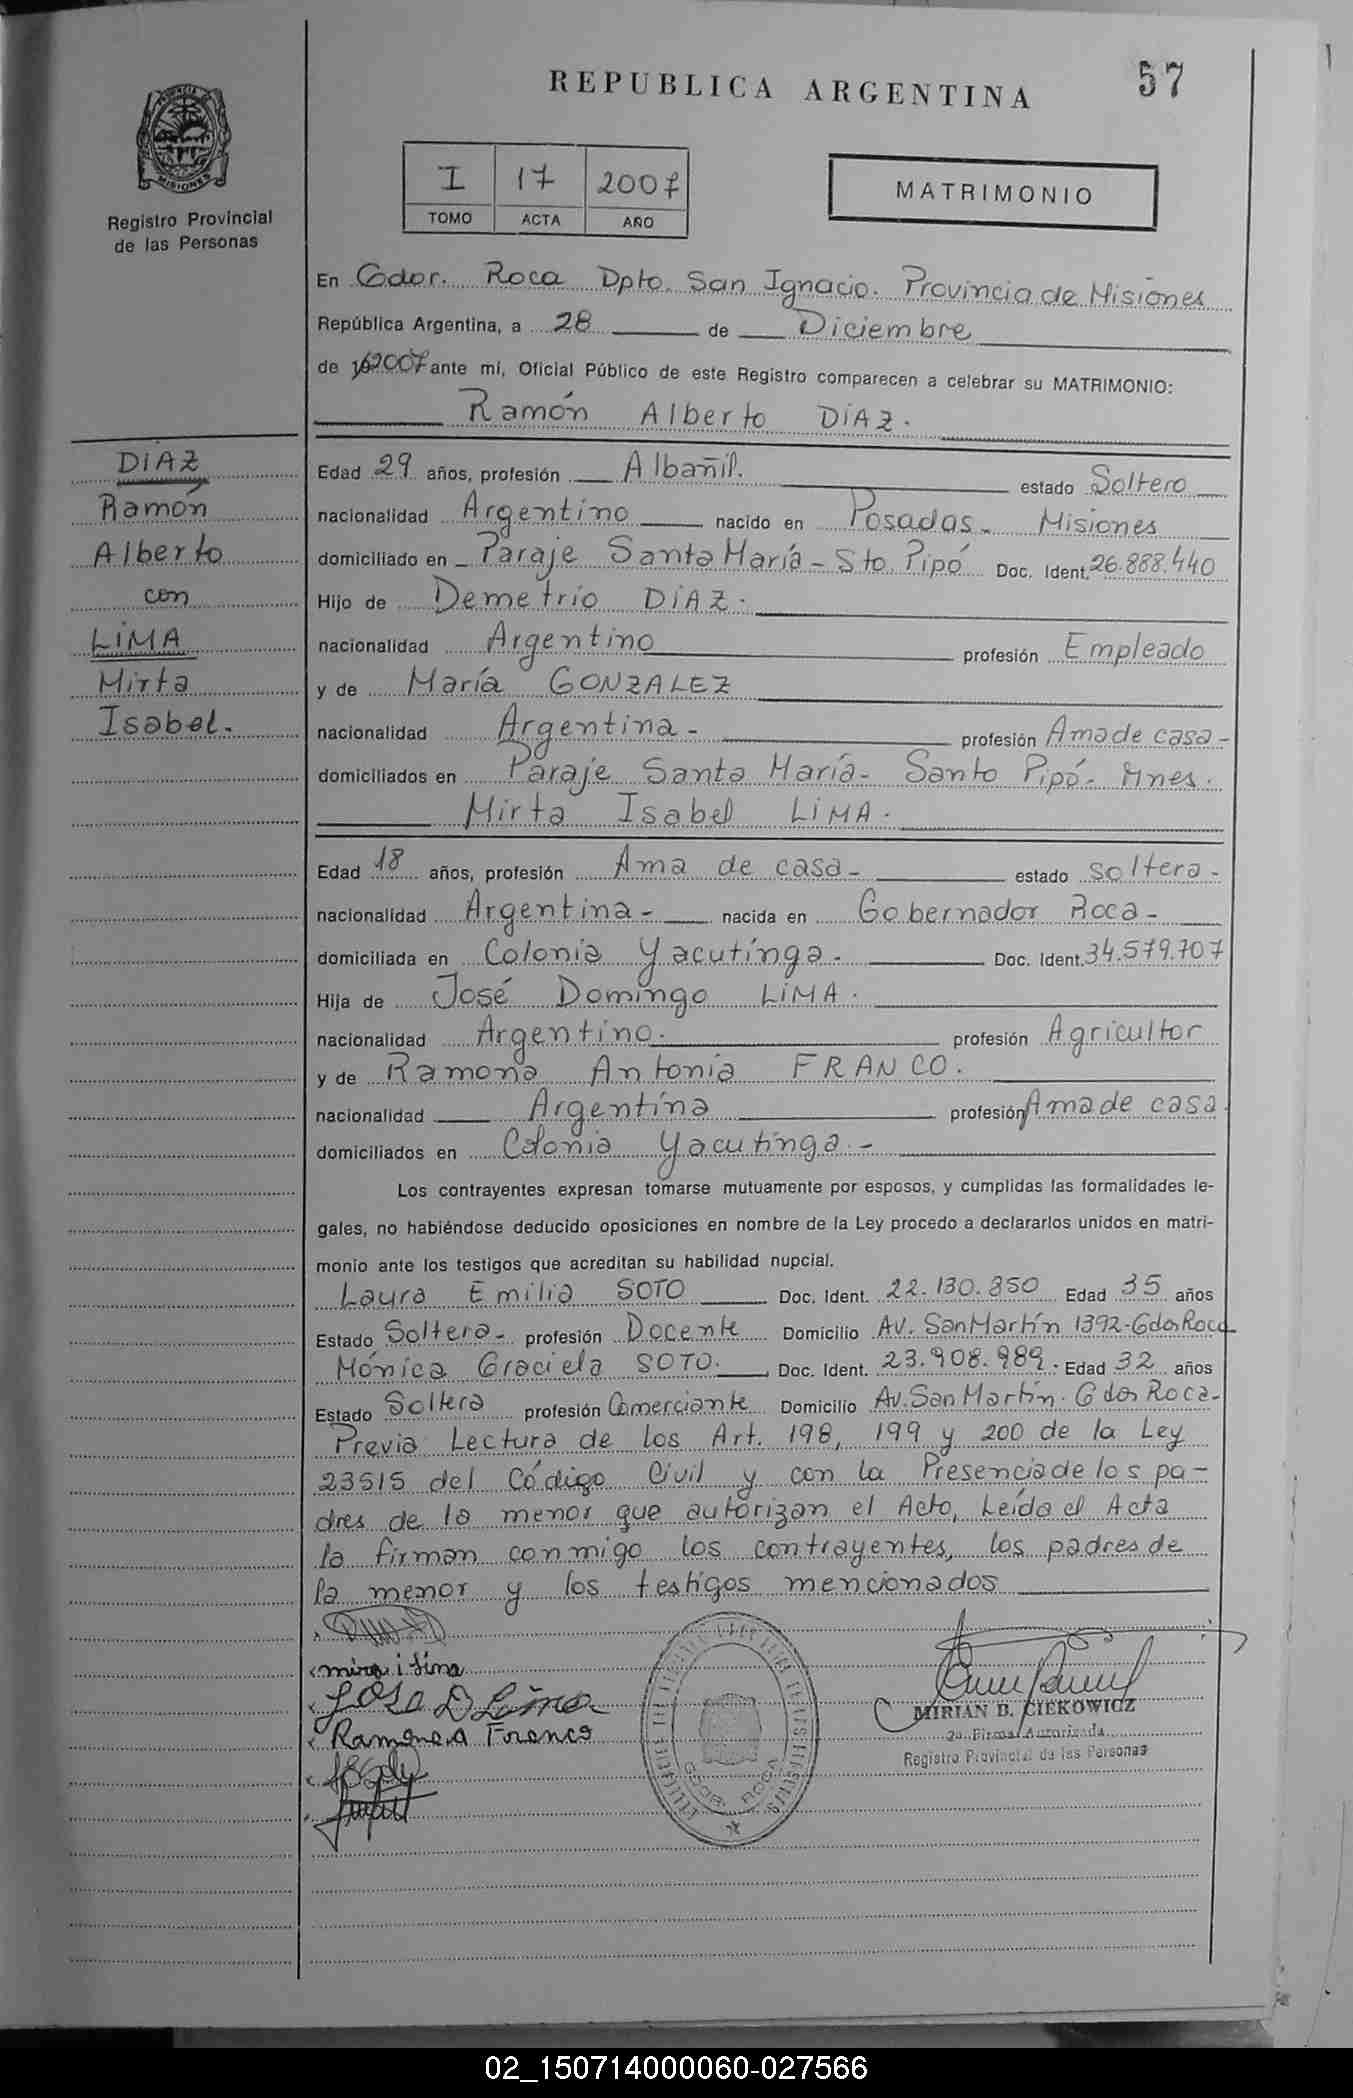 REPUBLICA ARGENTINA
57
PROVINCIA DE
MISIONES
Registro Provincial
de las Personas
I 17 2007
TOMO ACTA AÑO
MATRIMONIO
En Gdor. Roca Dpto. San Ignacio. Provincia de Misiones
República Argentina, a 28 de Diciembre
de 2007 ante mí, Oficial Público de este Registro comparecen a celebrar su MATRIMONIO:
Ramón Alberto DIAZ.
DIAZ
Ramón
Alberto
con
LIMA
Mirta
Isabel.
Edad 29 años, profesión Albañil. estado Soltero
nacionalidad Argentino nacido en Posadas - Misiones
domiciliado en Paraje Santa María - Sto. Pipó Doc. Ident. 26.888.440
Hijo de Demetrio DIAZ.
nacionalidad Argentino profesión Empleado
y de María GONZALEZ
nacionalidad Argentina - profesión Ama de casa -
domiciliados en Paraje Santa María - Santo Pipó - Mnes.
Mirta Isabel LIMA.
Edad 18 años, profesión Ama de casa - estado soltera -
nacionalidad Argentina - nacida en Gobernador Roca -
domiciliada en Colonia Yacutinga. Doc. Ident. 34.579.707
Hija de José Domingo LIMA.
nacionalidad Argentino. profesión Agricultor
y de Ramona Antonia FRANCO.
nacionalidad Argentina profesión Ama de casa.
domiciliados en Colonia Yacutinga. -
Los contrayentes expresan tomarse mutuamente por esposos, y cumplidas las formalidades le-
gales, no habiéndose deducido oposiciones en nombre de la Ley procedo a declararlos unidos en matri-
monio ante los testigos que acreditan su habilidad nupcial.
Laura Emilia SOTO Doc. Ident. 22.130.350 Edad 35 años
Estado Soltera - profesión Docente Domicilio AV. San Martín 1392 - Gdor Roca
Mónica Graciela SOTO. Doc. Ident. 23.908.989. Edad 32 años
Estado Soltera profesión Comerciante Domicilio Av. San Martín. Gdor Roca -
Previa Lectura de los Art. 198, 199 y 200 de la Ley
23515 del Código Civil y con la Presencia de los pa-
dres de la menor que autorizan el Acto, Leída el Acta
la firman conmigo los contrayentes, los padres de
la menor y los testigos mencionados
mirta i Lima
Jose D Lima
Ramona A Franco
GDOR. ROCA
MIRIAN B. CIEKOWICZ
2a. Firma Autorizada
Registro Provincial de las Personas
02_150714000060-027566